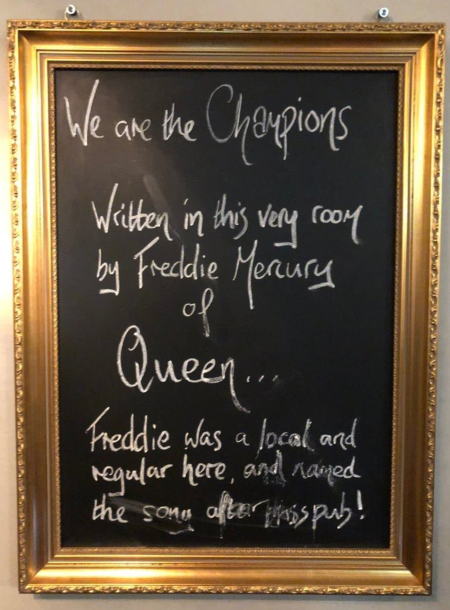 We are the Champions
Written in this very room
by Freddie Mercury
of
Queen...
Freddie was a local and
regular here, and named
the song after this pub!